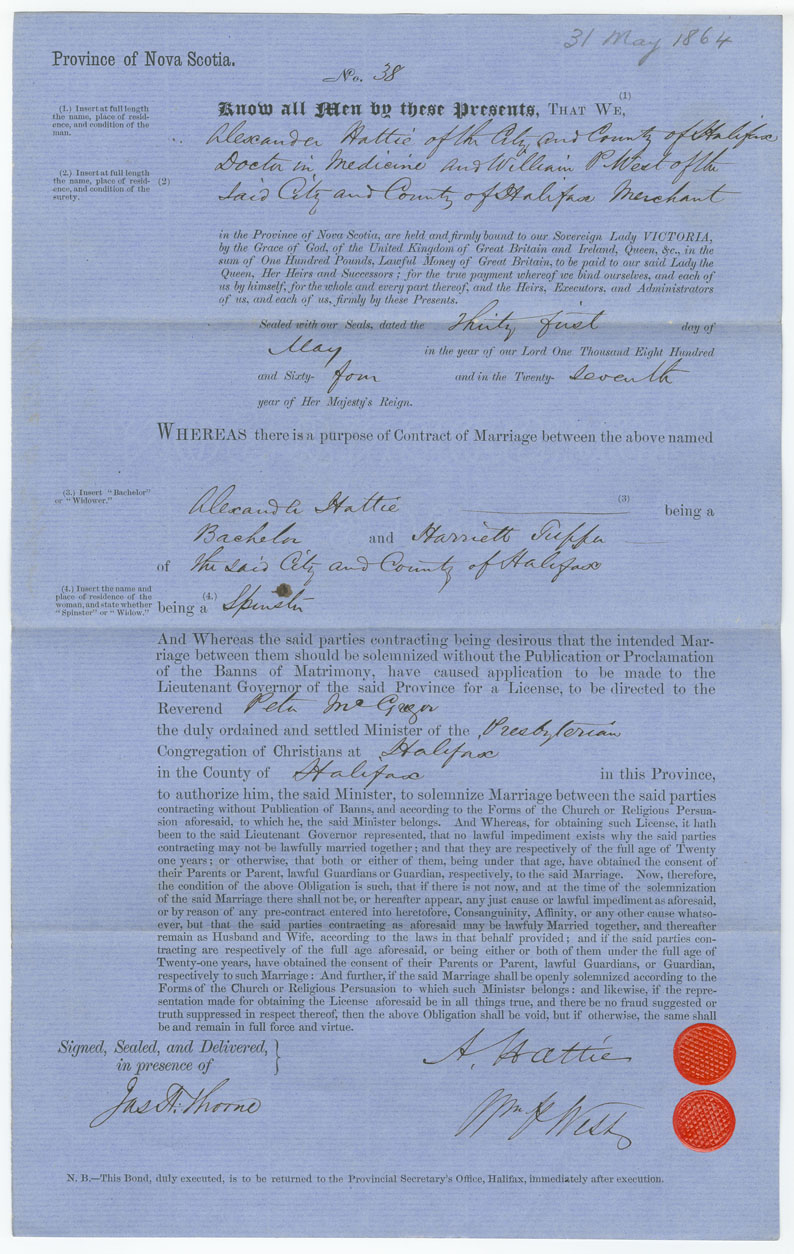 31 May 1864
Province of Nova Scotia.
No. 38
(1.) Insert at full length
the name, place of resid-
ence, and condition of the
man.
Know all Men by these Presents, THAT WE, (1)
Alexander Hattie of the City and County of Halifax
Doctor in Medicine and William P. West of the
(2.) Insert at full length
the name, place of resid-
ence, and condition of the
surety.
(2) Said City and County of Halifax Merchant
in the Province of Nova Scotia, are held and firmly bound to our Sovereign Lady VICTORIA,
by the Grace of God, of the United Kingdom of Great Britain and Ireland, Queen, &c., in the
sum of One Hundred Pounds, Lawful Money of Great Britain, to be paid to our said Lady the
Queen, Her Heirs and Successors; for the true payment whereof we bind ourselves, and each of
us by himself, for the whole and every part thereof, and the Heirs, Executors, and Administrators
of us, and each of us, firmly by these Presents.
Sealed with our Seals, dated the Thirty first day of
May in the year of our Lord One Thousand Eight Hundred
and Sixty- four and in the Twenty- seventh
year of Her Majesty's Reign.
WHEREAS there is a purpose of Contract of Marriage between the above named
(3.) Insert "Bachelor"
or "Widower."
Alexander Hattie (3) being a
Bachelor and Harriett Tupper
of the said City and County of Halifax
(4.) Insert the name and
place of residence of the
woman, and state whether
"Spinster" or "Widow."
being a (4.) Spinster
And Whereas the said parties contracting being desirous that the intended Mar-
riage between them should be solemnized without the Publication or Proclamation
of the Banns of Matrimony, have caused application to be made to the
Lieutenant Governor of the said Province for a License, to be directed to the
Reverend Peter McGregor
the duly ordained and settled Minister of the Presbyterian
Congregation of Christians at Halifax
in the County of Halifax in this Province,
to authorize him, the said Minister, to solemnize Marriage between the said parties
contracting without Publication of Banns, and according to the Forms of the Church or Religious Persua-
sion aforesaid, to which he, the said Minister belongs. And Whereas, for obtaining such License, it hath
been to the said Lieutenant Governor represented, that no lawful impediment exists why the said parties
contracting may not be lawfully married together; and that they are respectively of the full age of Twenty
one years; or otherwise, that both or either of them, being under that age, have obtained the consent of
their Parents or Parent, lawful Guardians or Guardian, respectively, to the said Marriage. Now, therefore,
the condition of the above Obligation is such, that if there is not now, and at the time of the solemnization
of the said Marriage there shall not be, or hereafter appear, any just cause or lawful impediment as aforesaid,
or by reason of any pre-contract entered into heretofore, Consanguinity, Affinity, or any other cause whatso-
ever, but that the said parties contracting as aforesaid may be lawfuly Married together, and thereafter
remain as Husband and Wife, according to the laws in that behalf provided; and if the said parties con-
tracting are respectively of the full age aforesaid, or being either or both of them under the full age of
Twenty-one years, have obtained the consent of their Parents or Parent, lawful Guardians, or Guardian,
respectively to such Marriage: And further, if the said Marriage shall be openly solemnized according to the
Forms of the Church or Religious Persuasion to which such Ministsr belongs: and likewise, if the repre-
sentation made for obtaining the License aforesaid be in all things true, and there be no fraud suggested or
truth suppressed in respect thereof, then the above Obligation shall be void, but if otherwise, the same shall
be and remain in full force and virtue.
Signed, Sealed, and Delivered,
in presence of
A. Hattie
Jas H. Thorne
Wm P West
N. B.—This Bond, duly executed, is to be returned to the Provincial Secretary's Office, Halifax, immediately after execution.